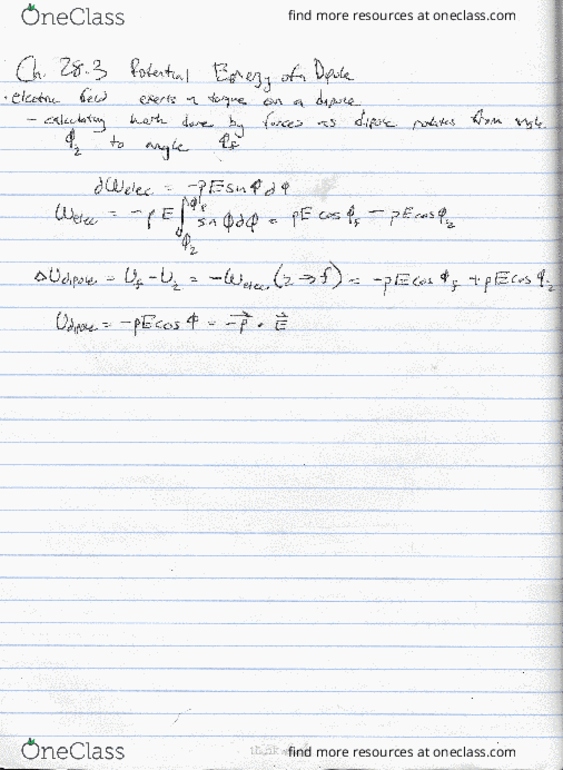 OneClass find more resources at oneclass.com
Ch. 28.3 Potential Energy of a Dipole
• electric field exerts a torque on a dipole
- calculating work done by forces as dipole rotates from angle
φ₂ to angle φf
dWelec = -pE sin φ dφ
Welec = -pE ∫φ₂^φf sin φ dφ = pE cos φf - pE cos φ₂
ΔUdipole = Uf - U₂ = -Welec (2 → f) = -pE cos φf + pE cos φ₂
Udipole = -pE cos φ = -p⃗ • E⃗
OneClass find more resources at oneclass.com